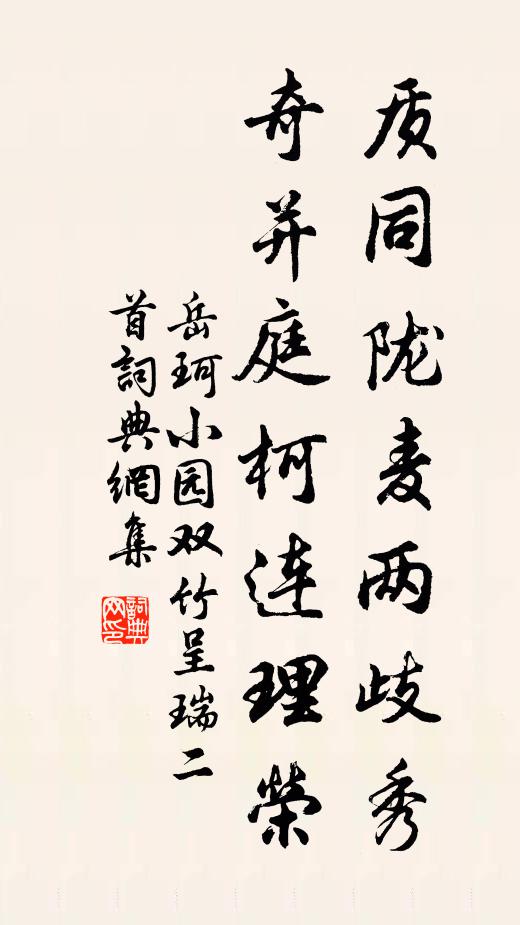 质同陇麦两歧秀
奇并庭柯连理榮
岳珂小园双竹呈瑞二
首詞典網集
詞典
网印